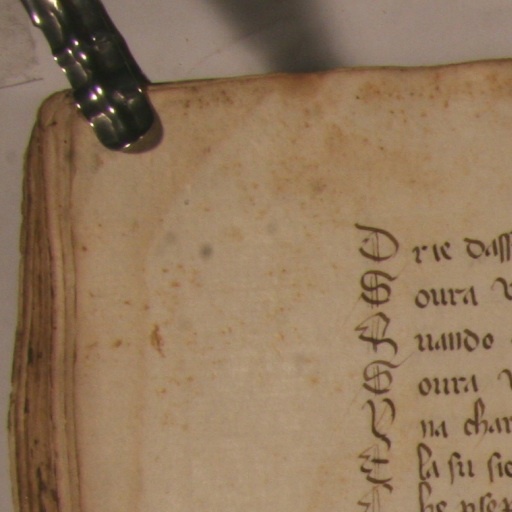 D rie dass
S oura v
E uando
S oura v
V na char
E la su sie